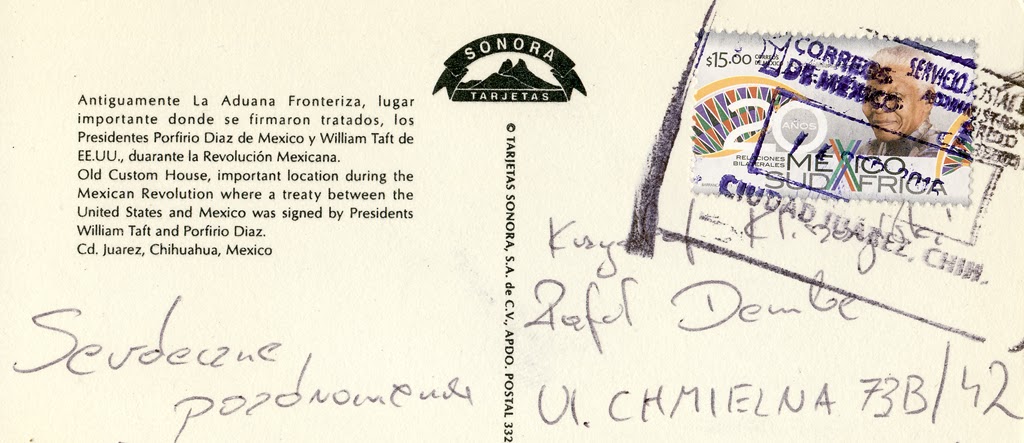 Antiguamente La Aduana Fronteriza, lugar
importante donde se firmaron tratados, los
Presidentes Porfirio Diaz de Mexico y William Taft de
EE.UU., duarante la Revolución Mexicana.
Old Custom House, important location during the
Mexican Revolution where a treaty between the
United States and Mexico was signed by Presidents
William Taft and Porfirio Diaz.
Cd. Juarez, Chihuahua, Mexico
Serdeczne
pozdrowienia
SONORA
TARJETAS
© TARJETAS SONORA, S.A. de C.V., APDO. POSTAL 332
$15.00 CORREOS DE MEXICO
20 AÑOS
RELACIONES
BILATERALES
MÉXICO
SUDÁFRICA
CORREOS
DE MEXICO
SERVICIO POSTAL
CIUDAD JUAREZ, CHIH.
Rafał Dembe
Ul. CHMIELNA 73B/42